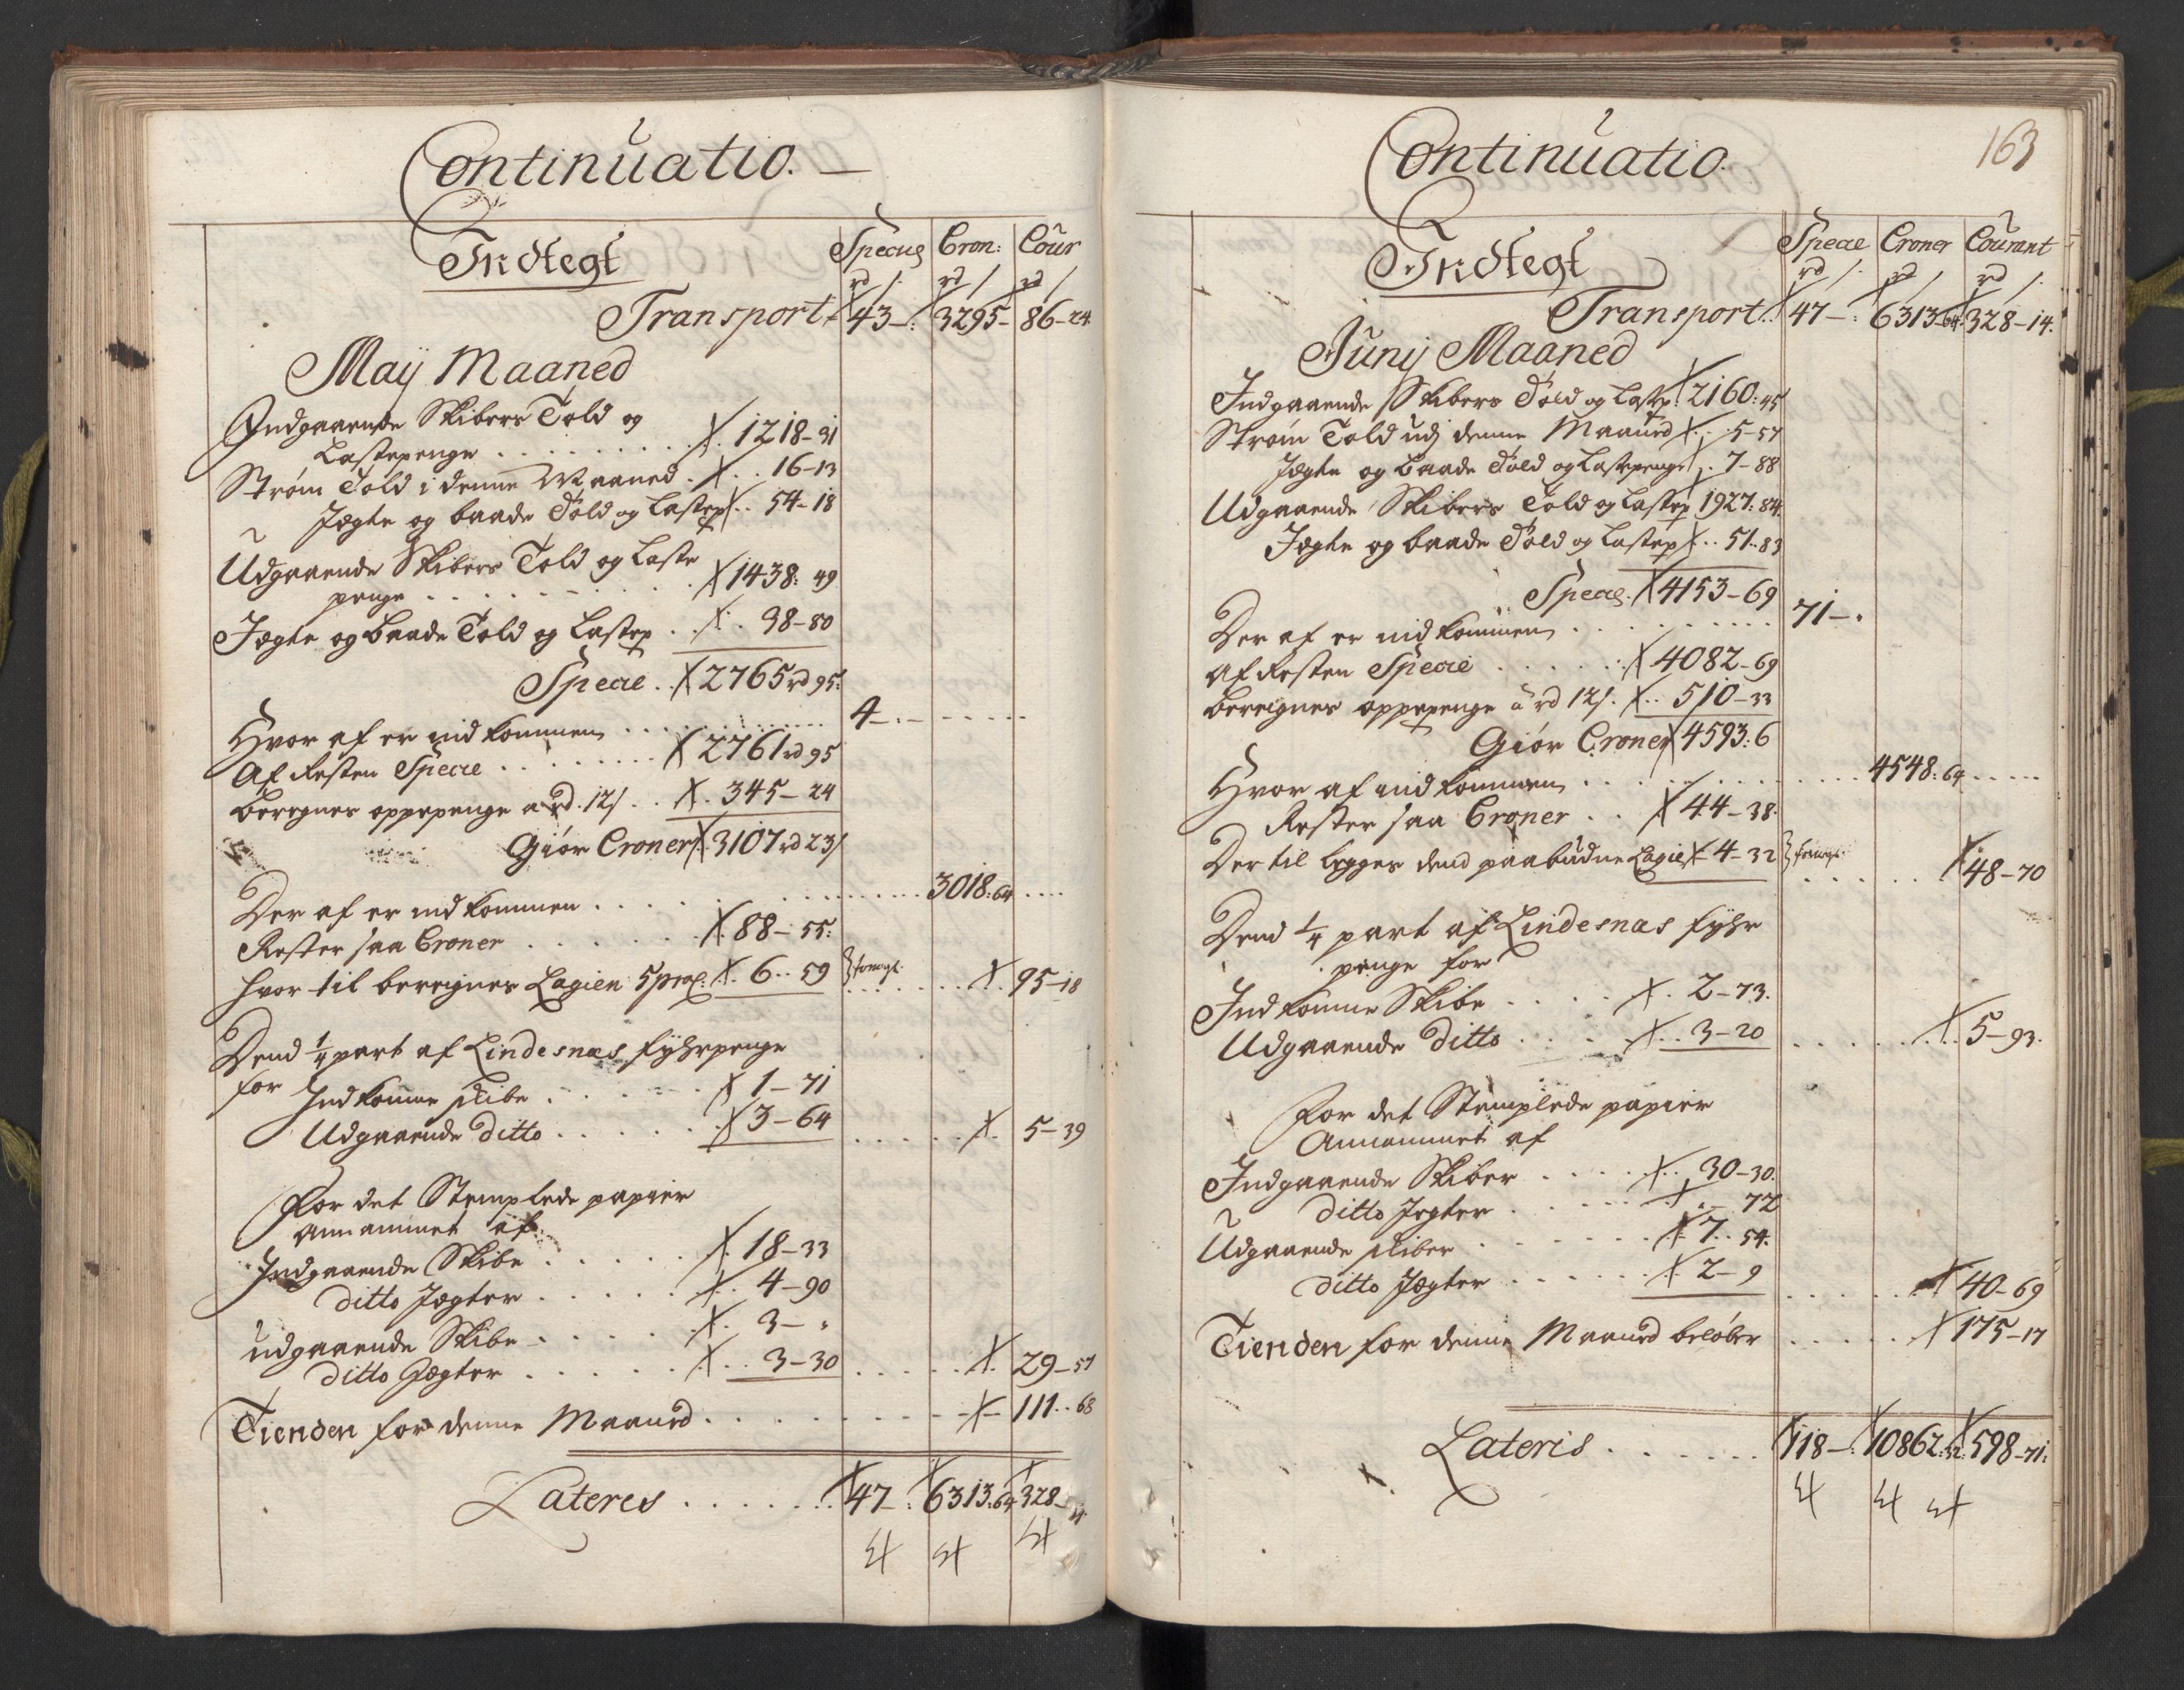 Continuatio.
Indtegt
Specie Cron: Cour
rd / rd / rd /
Transport 43 –: 3295 – 86 – 24.
Maÿ Maaned
Indgaaende Skibers Told og
Lastepenge . . . . . . . 1218 – 31
Strøm Told i denne Maaned . . 16 – 13
Jægte og baade Told og Lastep . . 54 – 18
Udgaaende Skibers Told og Laste
penge . . . . . . . 1438: 49
Jægte og baade Told og Lastep . . 38 – 80
Specie . . 2765 rd 95:
Hvor af er indkommen . . . . . . 4 – . –
Af Resten Specie . . . . . . 2761 rd 95
beregnes oppepenge a rd. 12/ . . 345 – 24
Giør Croner 3107 rd 23/
Der af er indkommen . . . . . . 3018: 64 . . . .
Rester saa Croner . . . . . . 88 – 55:
hvor til beregnes Lagien 5 proc: . 6 . . 59 . . . . 95 – 18
Dend 1/4 part af Lindesnæs fyhrpenge
for Indkomne skibe . . . . 1 – 71
Udgaaende ditto . . . . . 3 – 64 . . . . . 5 – 39
For det Stemplede papier
Annammet af
Indgaaende Skibe . . . . . 18 – 33
ditto Jægter . . . . . 4 – 90
udgaaende Skibe . . . . . 3 – "
ditto Jægter . . . . . 3 – 30 . . . . . 29 – 57
Tienden for denne Maaned . . . . . . . 111 . . 68
Lateris . . . . . . 47 – : 6313: 64 328 – 14.
163
Continuatio.
Indtegt
Specie Croner Courant
rd / rd / rd /
Transport . . 47 – : 6313 – 64: 328 – 14.
Junij Maaned
Indgaaende Skibers Told og Lastep: 2160: 45
Strøm Told udj denne Maaned . . 5 – 57
Jægte og Baade Told og Lastepenge . 7 – 88
Udgaaende Skibers Told og Lastep 1927: 84.
Jægte og baade Told og Lastep . . 51 . . 83
Specie . 4153 – 69
Der af er indkommen . . . . . . . 71 – .
Af Resten Specie . . . . . . 4082 – 69
beregnes oppepenge a rd 12/. . . 510 – 33
Giør Croner 4593: 6
Hvor af indkommen . . . . . . . 4548: 64 . . . . .
Rester saa Croner . . 44 – 38.
Der til legges dend paabudne Lagie 4 – 32 . . . . 48 – 70
Dend 1/4 part af Lindesnæs fyhr
penge for
Indkomne Skibe . . . . . 2 – 73.
Udgaaende ditto . . . . . 3 – 20 . . . . . 5 – 93.
For det Stemplede papier
Annammet af
Indgaaende Skiber . . . . . 30 – 30.
ditto Jægter . . . . . . – 72
Udgaaende skiber . . . . . . 7 . . 54.
ditto Jægter . . . . . . 2 – 9 . . . . . 40 – 69
Tienden for denne Maaned beløber . . . . . 175 – 17
Lateris . . . . . . 118 – : 10862: 32: 598 – 71: